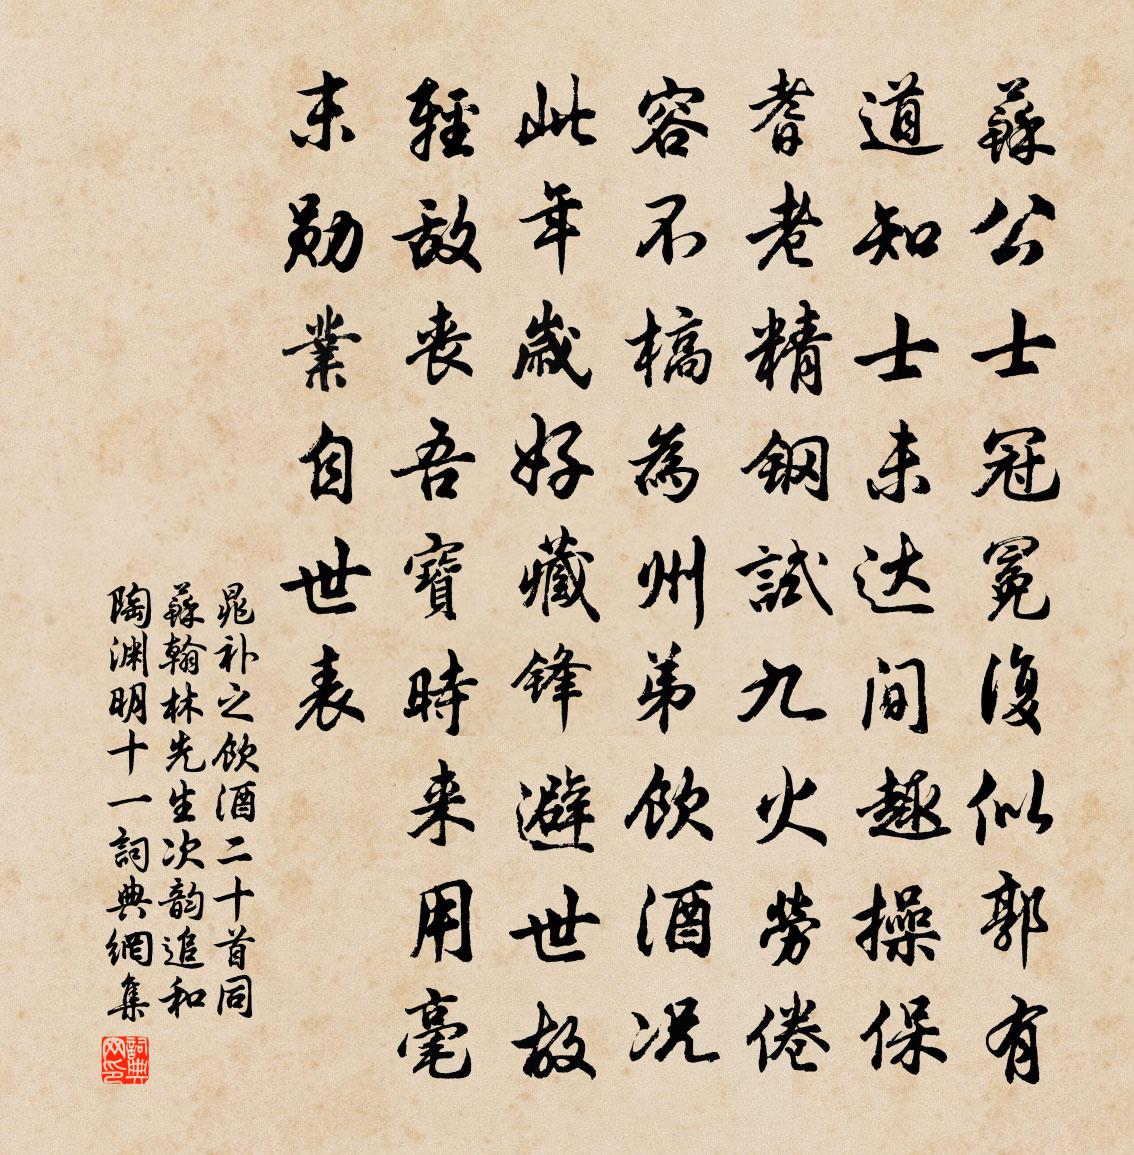 蘇公士冠冕復似郭有
道知士未达间趣操保
耆老精鋼試九火勞倦
容不槁為州弟飲酒况
此年嵗好藏锋避世故
輕敌丧吾寶時来用毫
末勋業自世表
晁补之飲酒二十首同
蘇翰林先生次韵追和
陶渊明十一詞典網集
詞典
网印